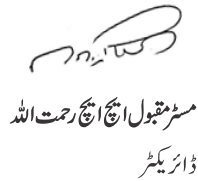 مسٹر مقبول ایچ ایچ رحمت اللہ
ڈائریکٹر